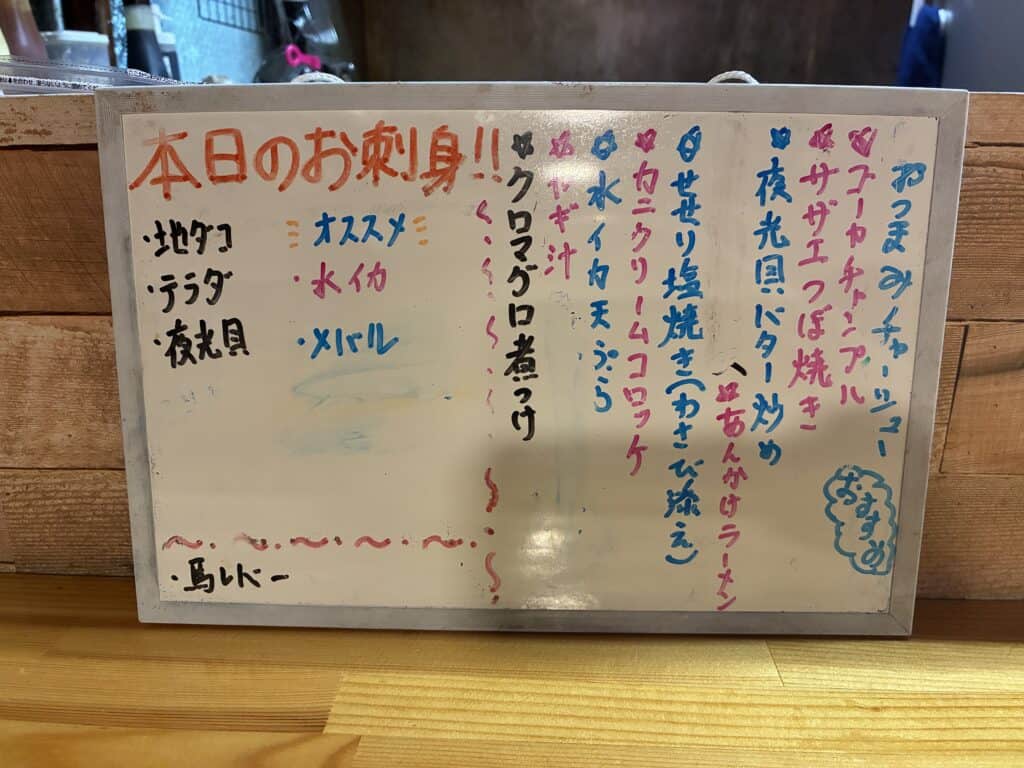 本日のお刺身!!
・地ダコ
・テラダ
・夜光貝
オススメ
・水イカ
・メバル
・馬レバー
おつまみチャーシュー
おすすめ
ゴーヤチャンプル
サザエつぼ焼き
夜光貝バター炒め
あんかけラーメン
せせり塩焼き(わさび添え)
カニクリームコロッケ
水イカ天ぷら
やぎ汁
クロマグロ煮つけ